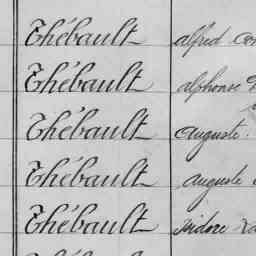 Thébault alfred
Thébault alphonse
Thébault auguste
Thébault auguste
Thébault isidore
Thébault